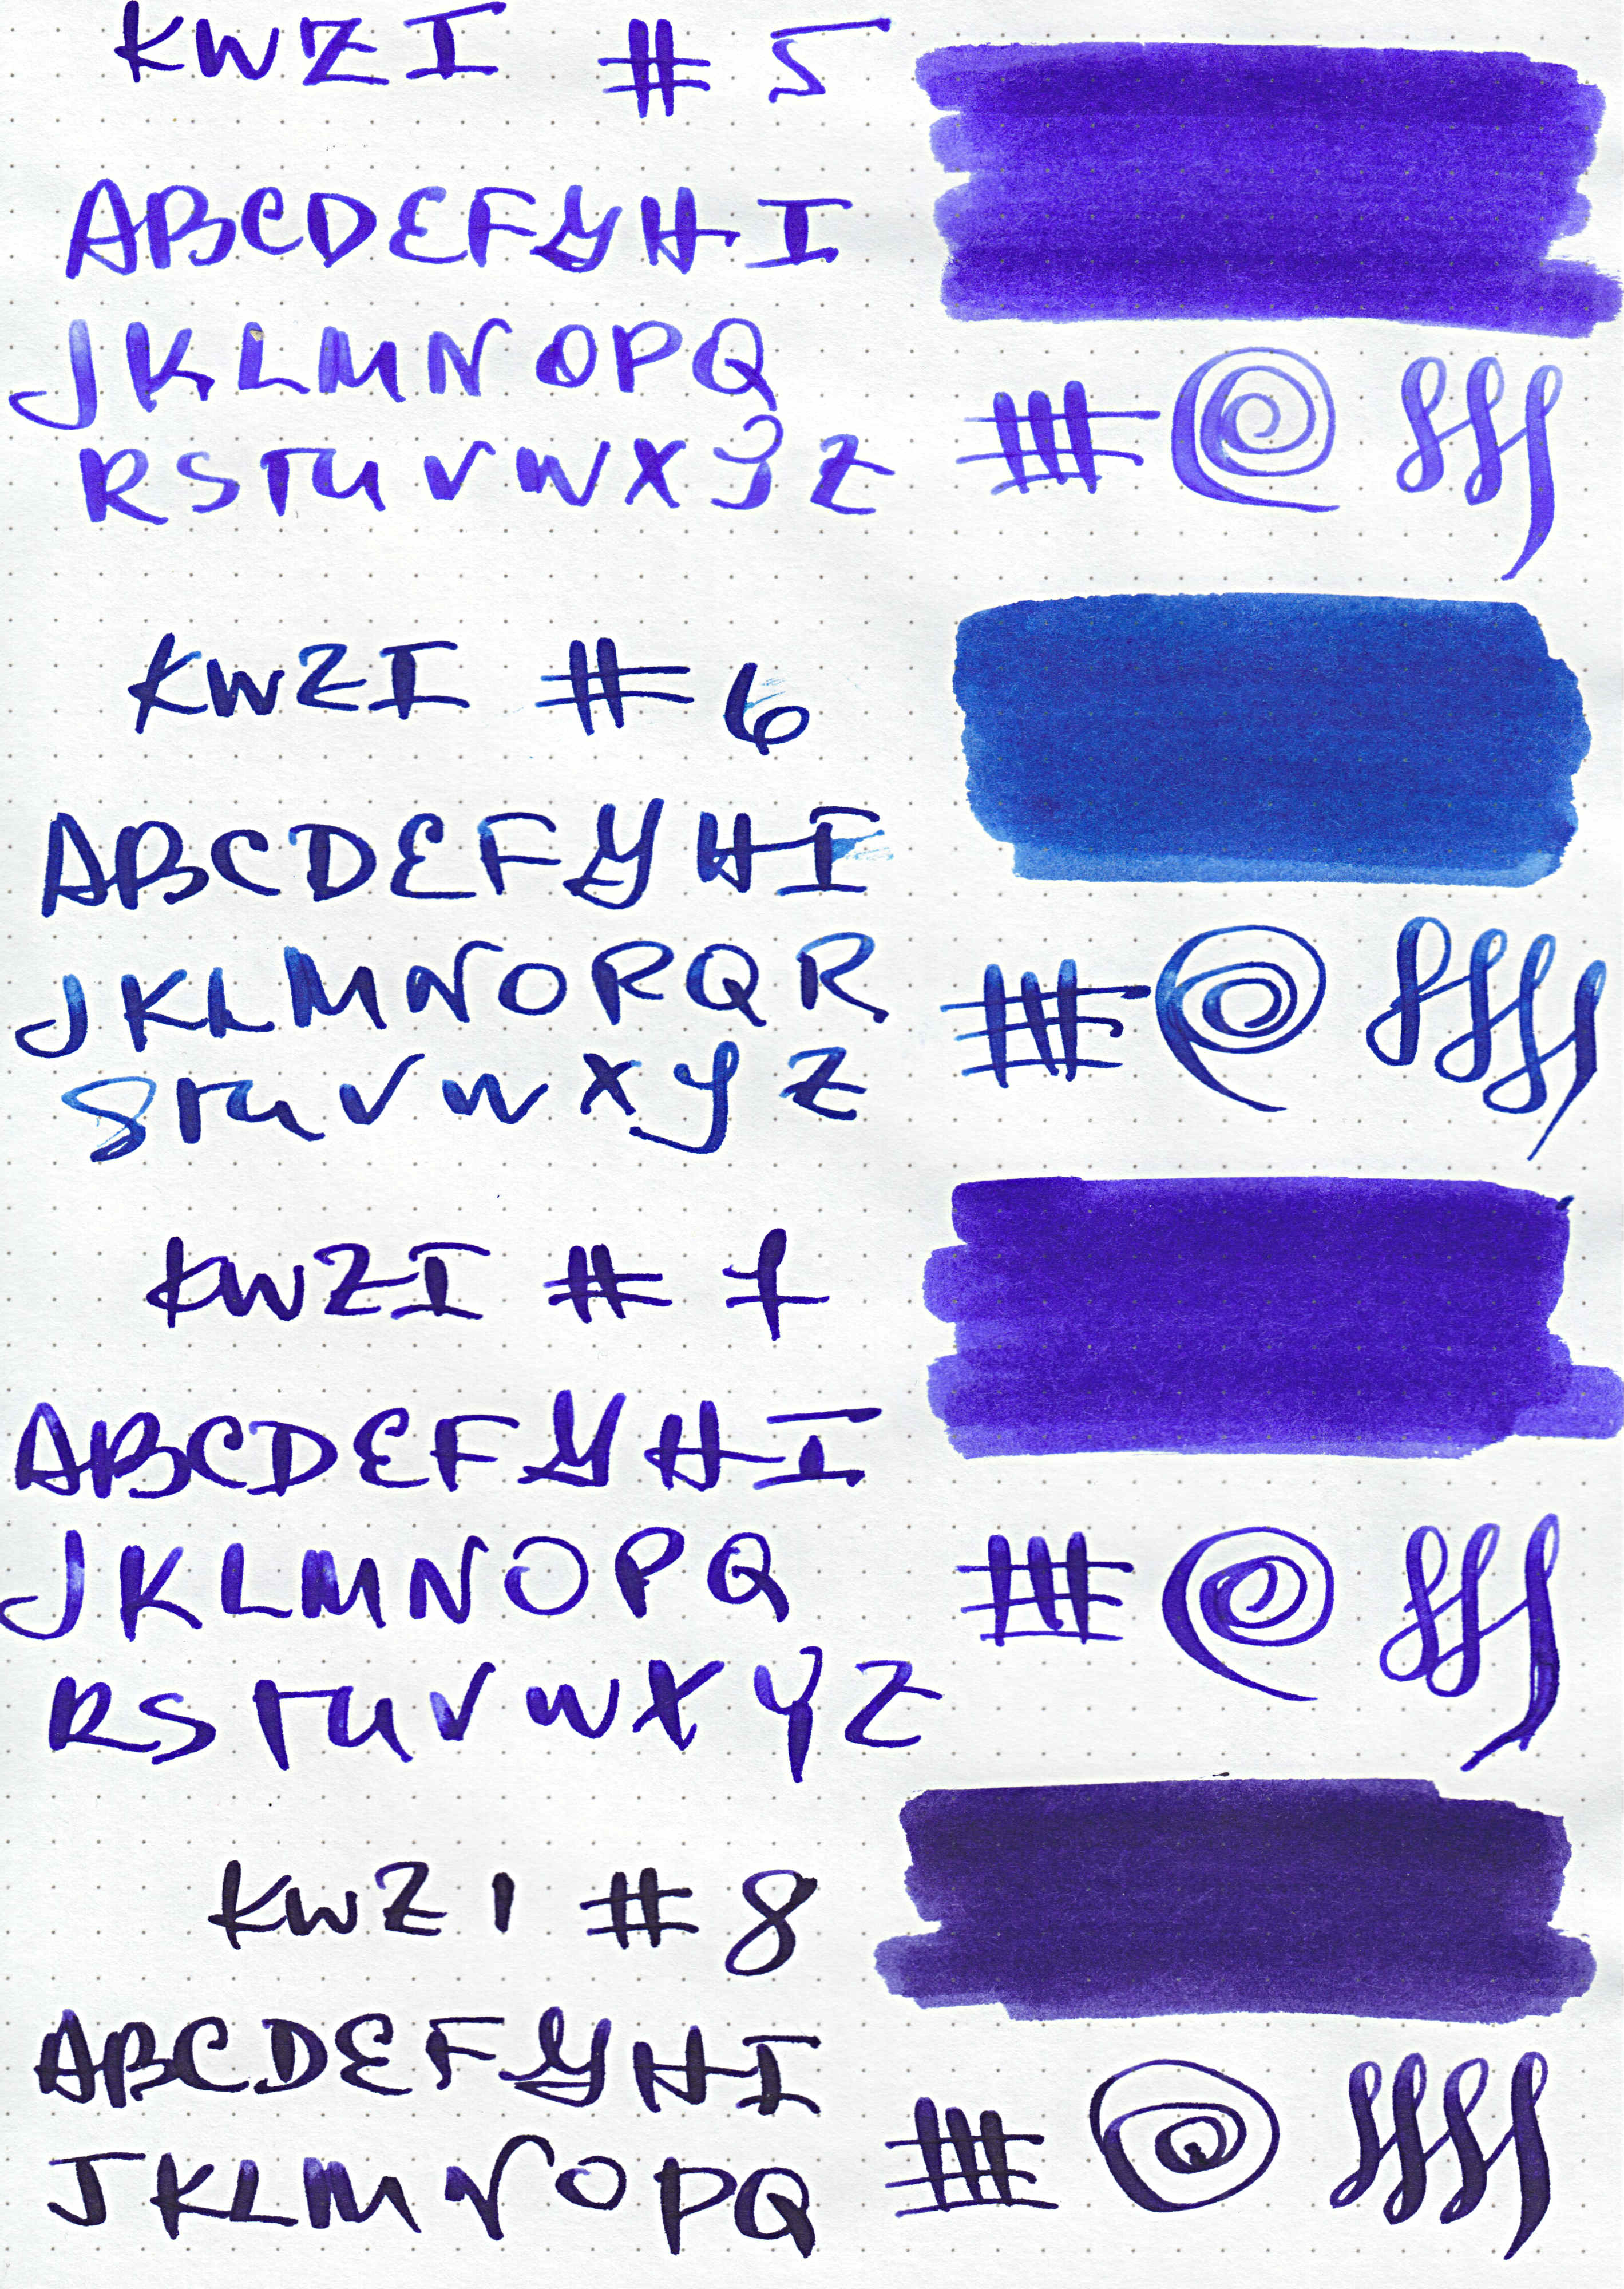 KWZI # 5
ABCDEFGHI
JKLMNOPQ
RSTUVWXYZ
KWZI # 6
ABCDEFGHI
JKLMNOPQR
STUVWXYZ
KWZI # 7
ABCDEFGHI
JKLMNOPQ
RSTUVWXYZ
KWZI # 8
ABCDEFGHI
JKLMNOPQ